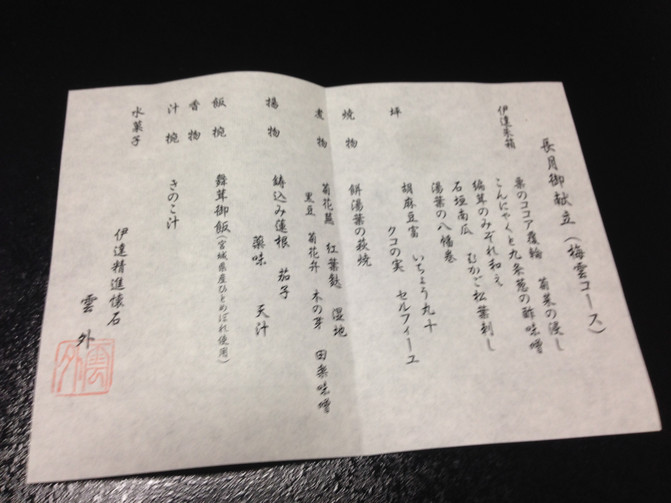 長月御献立（梅雲コース）
伊達朱箱
栗のココア覆輪　菊菜の浸し
こんにゃくと九条葱の酢味噌
編茸のみぞれ和え
石垣南瓜　むかご松葉刺し
湯葉の八幡巻
坪
胡麻豆富　いちょう九十
クコの実　セルフィーユ
焼物
餅湯葉の萩焼
煮物
菊花蕪　紅葉麩　湿地
黒豆　菊花弁　木の芽　田楽味噌
揚物
鋳込み蓮根　茄子
薬味　天汁
飯椀
舞茸御飯（宮城県産ひとめぼれ使用）
香物
汁椀
きのこ汁
水菓子
伊達精進懐石
雲外